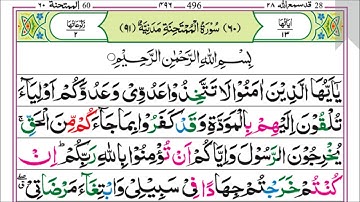 28 قد سمع اللّٰه ٢٨ 496 ٤٩٦ 60 الممتحنة ٦٠
اٰيَاتُهَا ١٣ (٦٠) سُوْرَةُ الْمُمْتَحِنَةِ مَدَنِيَّةٌ (٩١) رُكُوْعَاتُهَا ٢
بِسْمِ اللّٰهِ الرَّحْمٰنِ الرَّحِيْمِ
يٰۤاَيُّهَا الَّذِيْنَ اٰمَنُوْا لَا تَتَّخِذُوْا عَدُوِّيْ وَعَدُوَّكُمْ اَوْلِيَآءَ
تُلْقُوْنَ اِلَيْهِمْ بِالْمَوَدَّةِ وَقَدْ كَفَرُوْا بِمَا جَآءَكُمْ مِّنَ الْحَقِّ ۚ
يُخْرِجُوْنَ الرَّسُوْلَ وَاِيَّاكُمْ اَنْ تُؤْمِنُوْا بِاللّٰهِ رَبِّكُمْ ؕ اِنْ
كُنْتُمْ خَرَجْتُمْ جِهَادًا فِيْ سَبِيْلِيْ وَابْتِغَآءَ مَرْضَاتِيْ